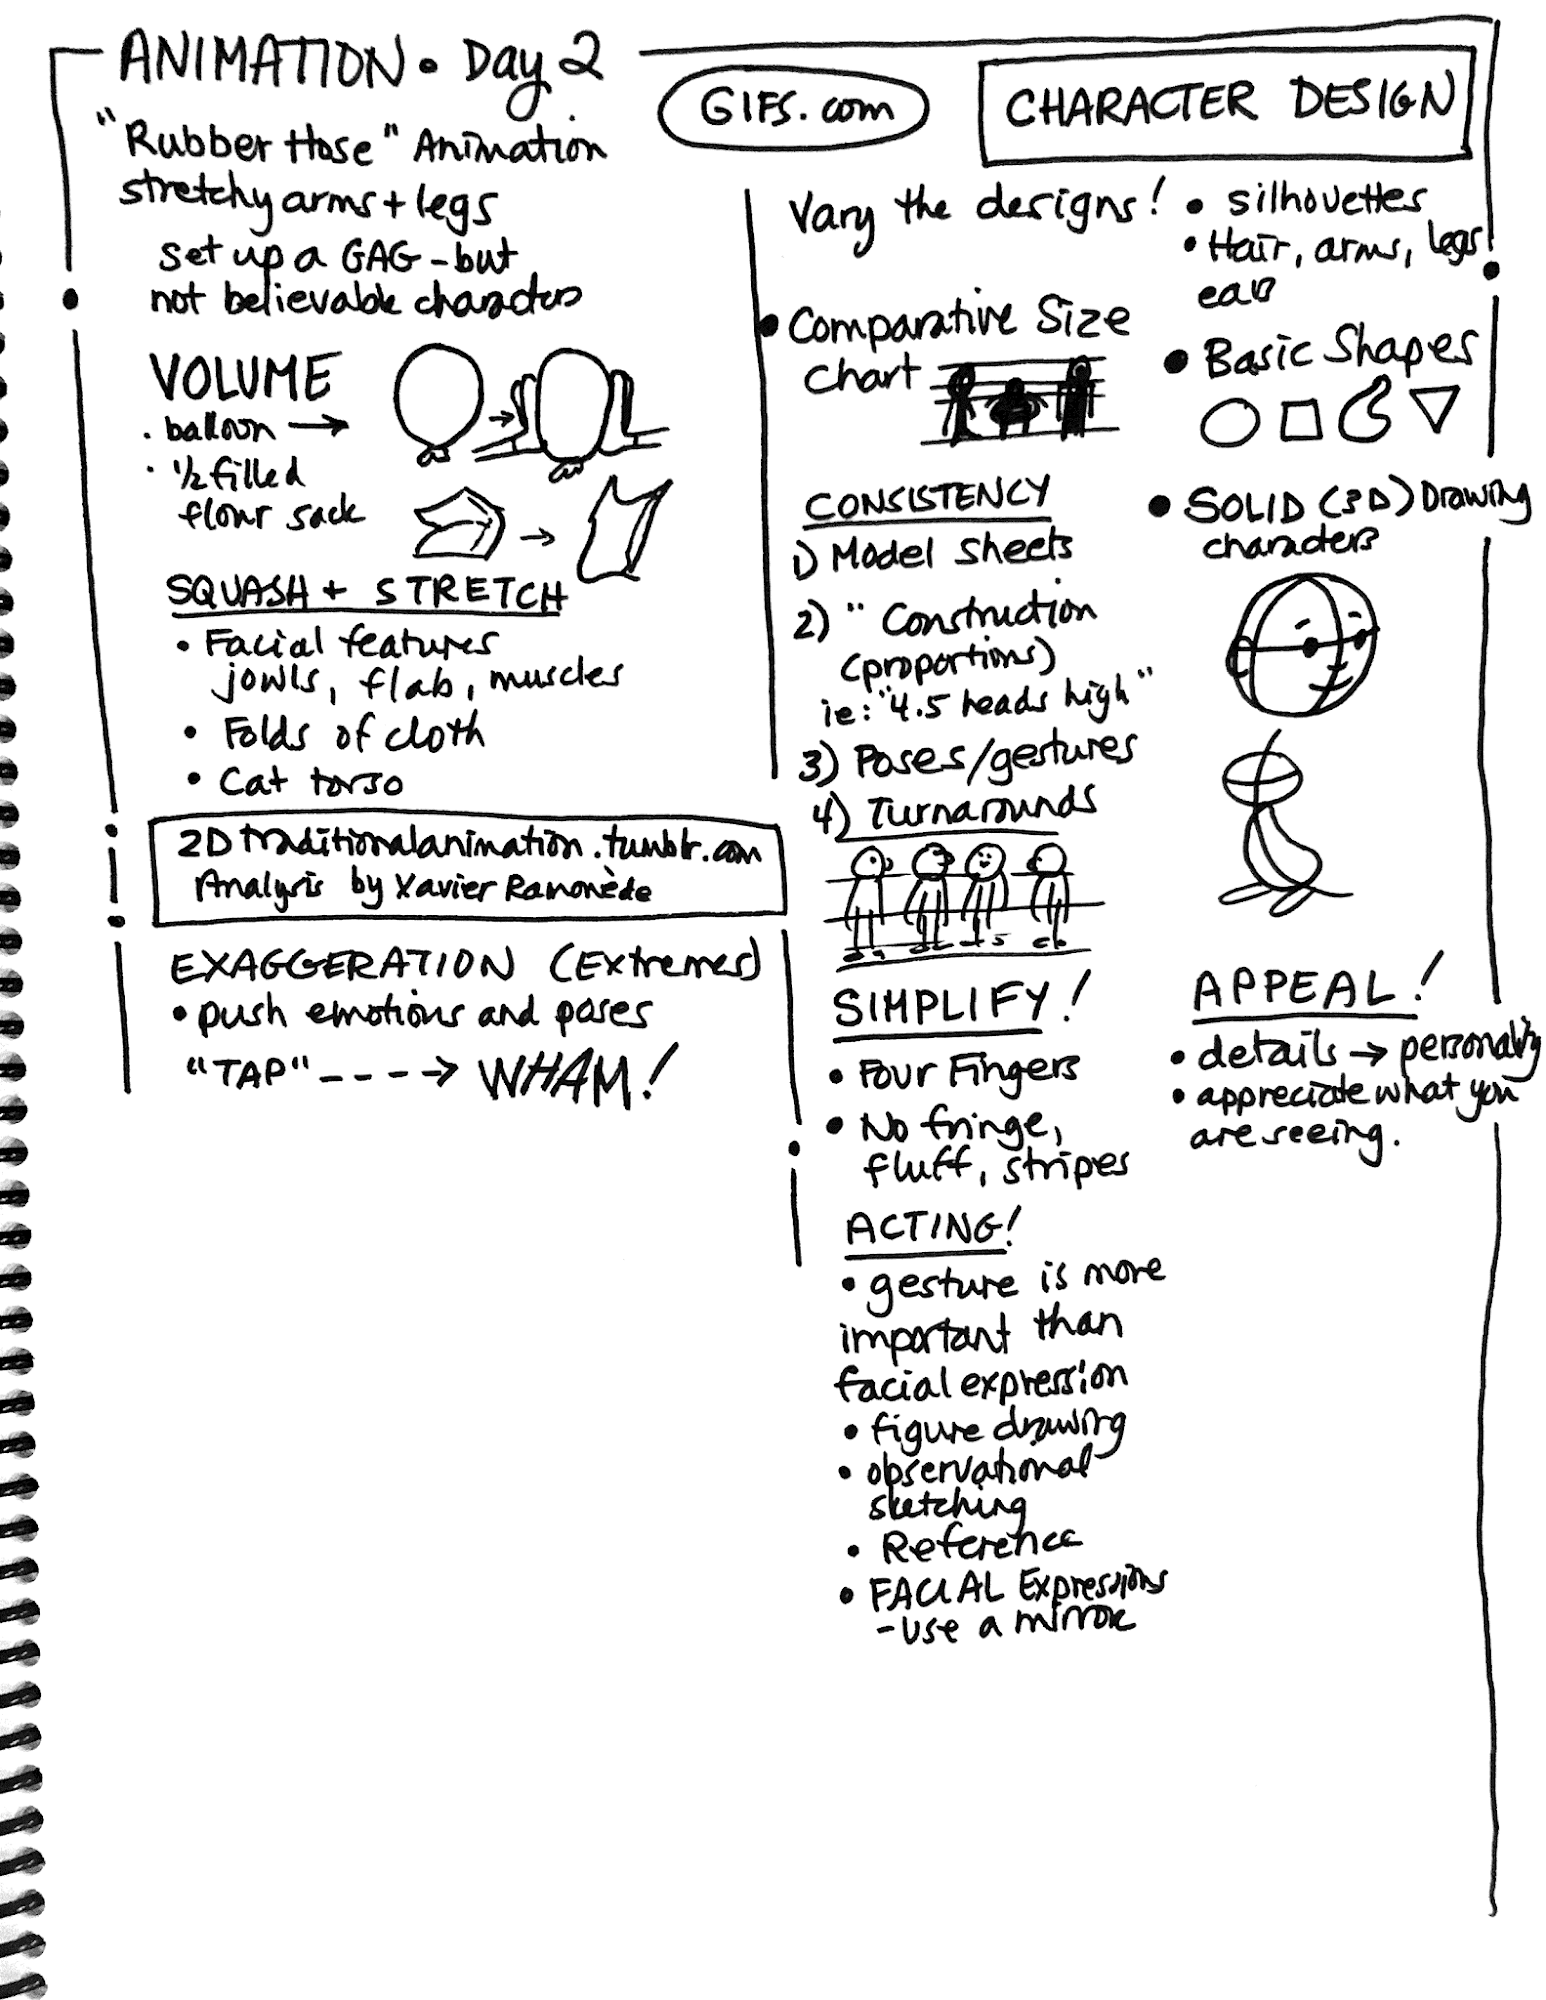 ANIMATION • Day 2
"Rubber Hose" Animation
stretchy arms + legs
set up a GAG - but
not believable characters
VOLUME
. balloon →
· 1/2 filled
flour sack
SQUASH + STRETCH
• Facial features
jowls, flab, muscles
• Folds of cloth
• Cat torso
2D traditionalanimation.tumblr.com
Analysis by Xavier Ramonède
EXAGGERATION (Extremes)
• push emotions and poses
"TAP" ----> WHAM!
GIFS.com
CHARACTER DESIGN
Vary the designs!
• silhouettes
• Hair, arms, legs
ears
• Comparative Size
chart
• Basic Shapes
CONSISTENCY
1) Model Sheets
2) " Construction
(proportions)
ie: "4.5 heads high"
3) Poses/gestures
4) Turnarounds
• SOLID (3D) Drawing
characters
SIMPLIFY!
• Four Fingers
• No fringe,
fluff, stripes
ACTING!
• gesture is more
important than
facial expression
• figure drawing
• observational
sketching
• Reference
• FACIAL Expressions
- use a mirror
APPEAL!
• details → personality
• appreciate what you
are seeing.